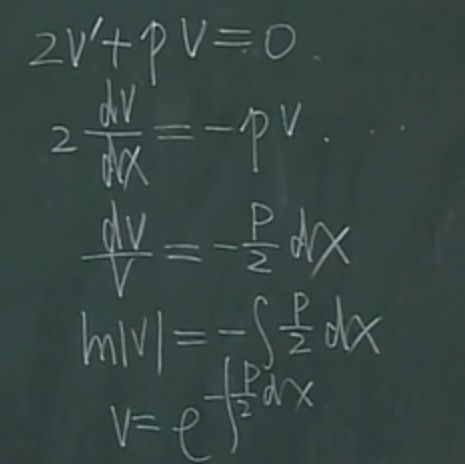 2v'+pv=0.
2 dv/dx = -pv. ...
dv/v = -p/2 dx
ln|v| = -∫ p/2 dx
v = e^{-∫ p/2 dx}